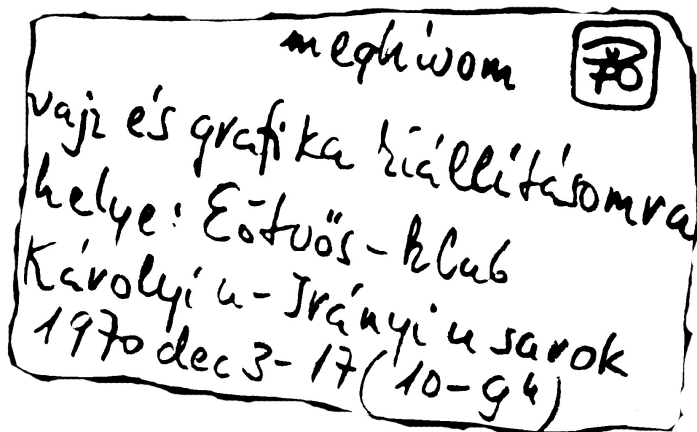 meghívom
vajz és grafika kiállításomra
helye: Eötvös-klub
Károlyi u-Irányi u sarok
1970 dec 3-17 (10-9h)